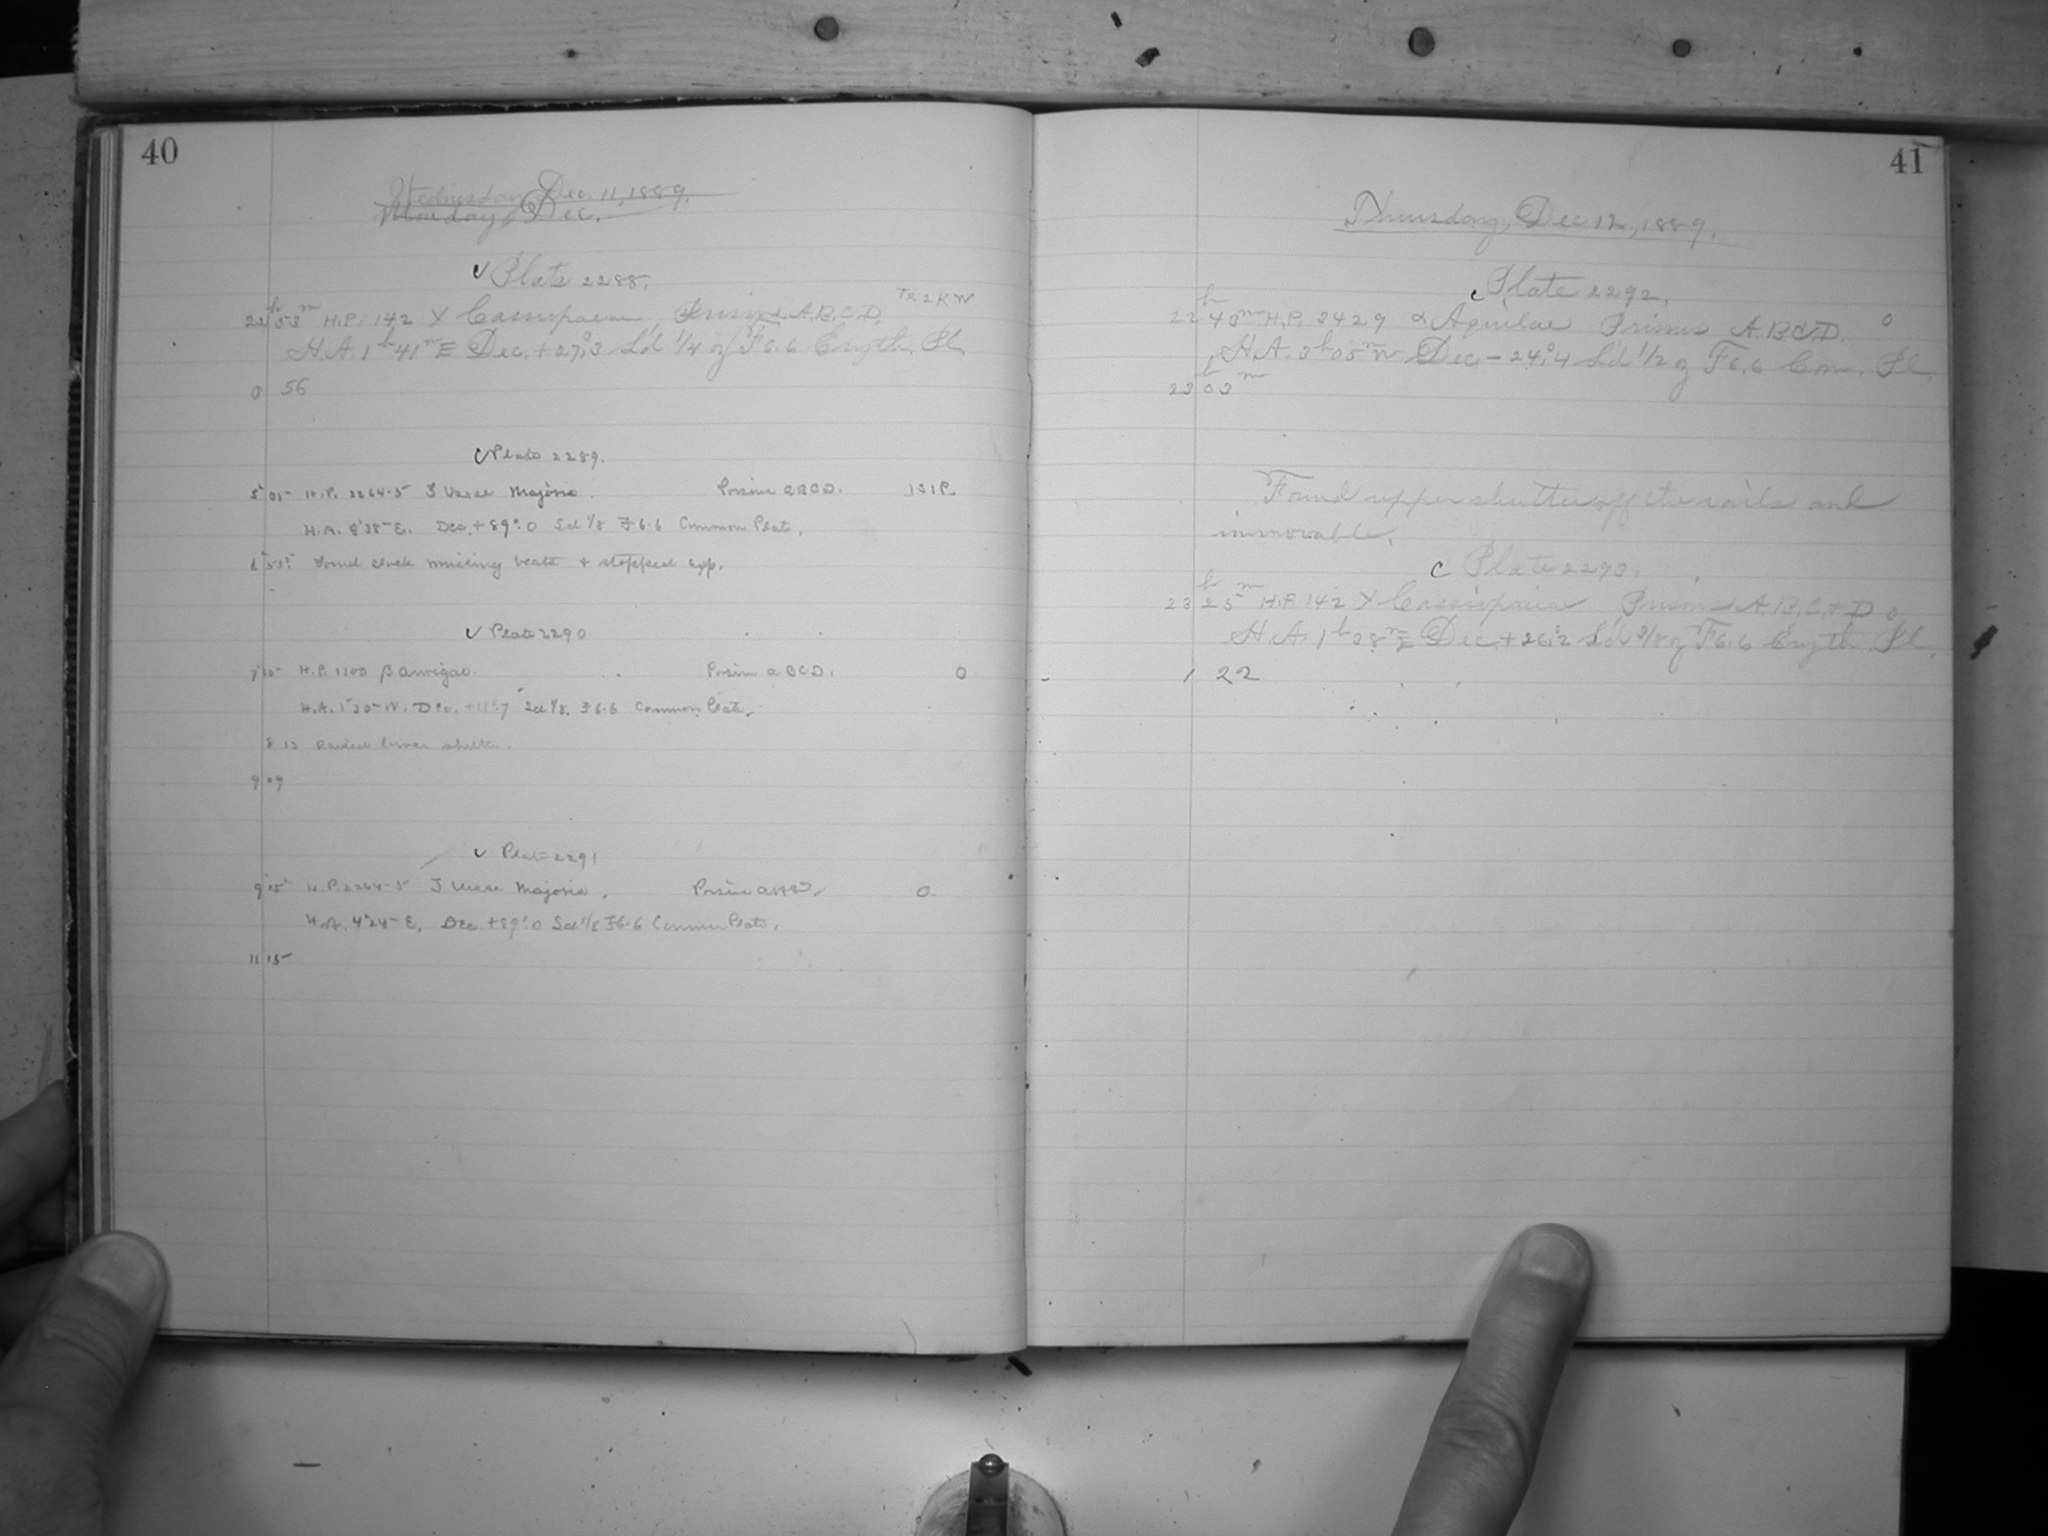 40
Wednesday Dec. 11, 1889.
Monday, Dec.
Plate 2288.
22 53m H.P. 142 γ Cassiopaiae Prisms A.B.C.D.
H.A. 1h 41m E Dec. + 27.°3 S'd 1/4 of F6.6 Eryth. Pl.
0 56
Plate 2289.
5 05 H.P. 2264-5 ζ Ursae Majoris. Prism ABCD. ISIP.
H.A. 8h 38m E. Dec. + 89°.0 Scl 1/8 F 6.6 Common Plate.
6 55 Found clock missing beats + stopped exp.
Plate 2290
7 15 H.P. 1100 β Aurigae Prism a BCD. 0
H.A. 1h 20m W. Dec. +11°.7 Scl 1/8. F6.6 Common Plate.
8 13 Raised lower shutter.
9 09
Plate 2291
9 15 H.P. 2264-5 ζ Ursae Majoris. Prism 0
H.A. 4h 24m E. Dec. + 89°.0 Scl 1/8 F6.6 Common Plate.
11 15
41
Thursday, Dec 12, 1889.
Plate 2292.
22h 43m H.P. 3429 α Aquilae Prisms A.B.C.D. 0
H.A. 3h 05m W Dec. - 24.°4 S'd 1/2 of F6.6 Com. Pl.
23h 03m
Found upper shutter off the rails and
immovable.
Plate 2293.
23h 25m H.P. 142 γ Cassiopaiae Prisms A.B.C.+D 0
H.A. 1h 08m E Dec. + 26.°2 S'd 3/8 of F6.6 Eryth. Pl.
1 22